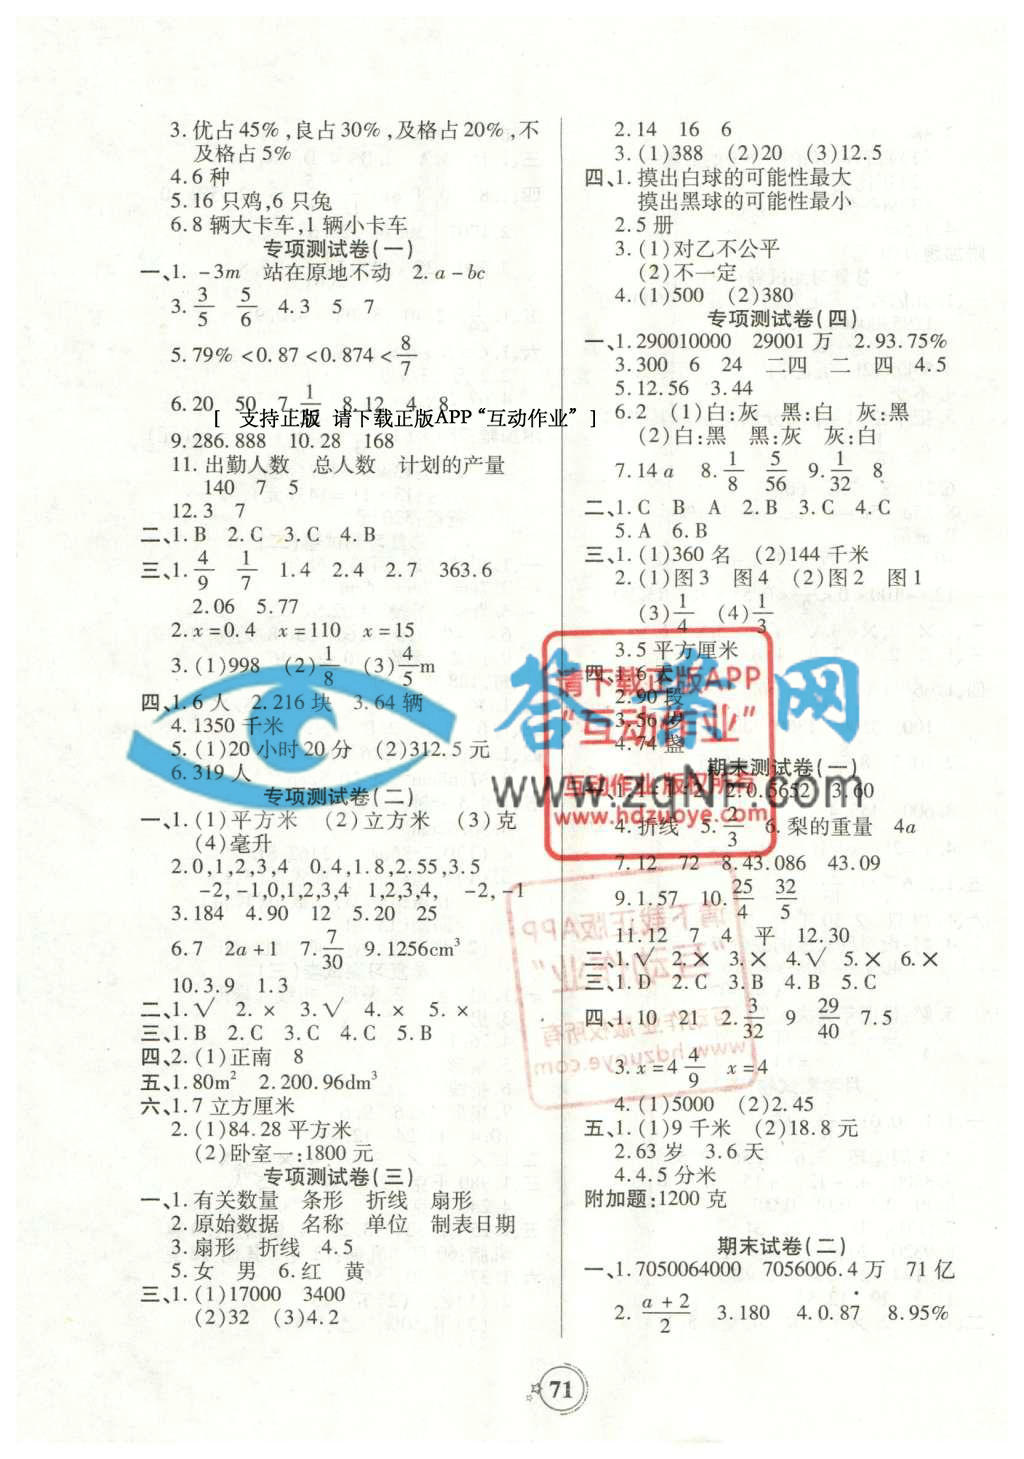 3.优占45%,良占30%,及格占20%,不
及格占5%
4.6 种
5.16 只鸡,6 只兔
6.8 辆大卡车,1 辆小卡车
专项测试卷(一)
一、1. -3m 站在原地不动 2.a-bc
3. 3/5 5/6 4.3 5 7
5.79%<0.87<0.874<8/7
6.20 50 7 8.12 4 8
[ 支持正版 请下载正版APP“互动作业” ]
9.286.888 10.28 168
11.出勤人数 总人数 计划的产量
140 7 5
12.3 7
二、1.B 2.C 3.C 4.B
三、1. 4/9 1/7 1.4 2.4 2.7 363.6
2.06 5.77
2.x=0.4 x=110 x=15
3.(1)998 (2)1/8 (3)4/5 m
四、1.6人 2.216 块 3.64 辆
4.1350 千米
5.(1)20 小时20 分 (2)312.5 元
6.319 人
专项测试卷(二)
一、1.(1)平方米 (2)立方米 (3)克
(4)毫升
2.0,1,2,3,4 0.4,1.8,2.55,3.5
-2,-1,0,1,2,3,4 1,2,3,4, -2,-1
3.184 4.90 12 5.20 25
6.7 2a+1 7. 7/30 9.1256cm³
10.3.9 1.3
二、1.√ 2.× 3.√ 4.× 5.×
三、1.B 2.C 3.C 4.C 5.B
四、2.(1)正南 8
五、1.80m² 2.200.96dm³
六、1.7 立方厘米
2.(1)84.28 平方米
(2)卧室一:1800 元
专项测试卷(三)
一、1.有关数量 条形 折线 扇形
2.原始数据 名称 单位 制表日期
3.扇形 折线 4.5
5.女 男 6.红 黄
三、1.(1)17000 3400
(2)32 (3)4.2
2.14 16 6
3.(1)388 (2)20 (3)12.5
四、1.摸出白球的可能性最大
摸出黑球的可能性最小
2.5 册
3.(1)对乙不公平
(2)不一定
4.(1)500 (2)380
专项测试卷(四)
一、1.290010000 29001 万 2.93.75%
3.300 6 24 二四 二 四 4.5
5.12.56 3.44
6.2 (1)白:灰 黑:白 灰:黑
(2)白:黑 黑:灰 灰:白
7.14a 8. 1/8 5/56 9. 1/32 8
二、1.C B A 2.B 3.C 4.C
5.A 6.B
三、1.(1)360 名 (2)144 千米
2.(1)图3 图4 (2)图2 图1
(3)1/4 (4)1/3
3.5 平方厘米
四、1.6 天
2.90 段
3.56 岁
4.74 盏
期末测试卷(一)
2.0.6652 3.60
4.折线 5. 2/3 6.梨的重量 4a
7.12 72 8.43.086 43.09
9.1.57 10. 25/4 32/5
11.12 7 4 平 12.30
二、1.√ 2.× 3.× 4.√ 5.× 6.×
三、1.D 2.C 3.B 4.B 5.C
四、1.10 21 2. 3/32 9 29/40 7.5
3.x=4 4/9 x=4
4.(1)5000 (2)2.45
五、1.(1)9 千米 (2)18.8 元
2.63 岁 3.6 天
4.4.5 分米
附加题:1200 克
期末试卷(二)
一、1.7050064000 7056006.4 万 71 亿
2. (a+2)/2 3.180 4.0.87̇ 8.95%
71
答案网
www.zqNF.com
请下载正版APP
“互动作业”
互动作业 版权所有
www.hdzuoye.com
请下载正版APP
“互动作业”
互动作业 版权所有
www.hdzuoye.com